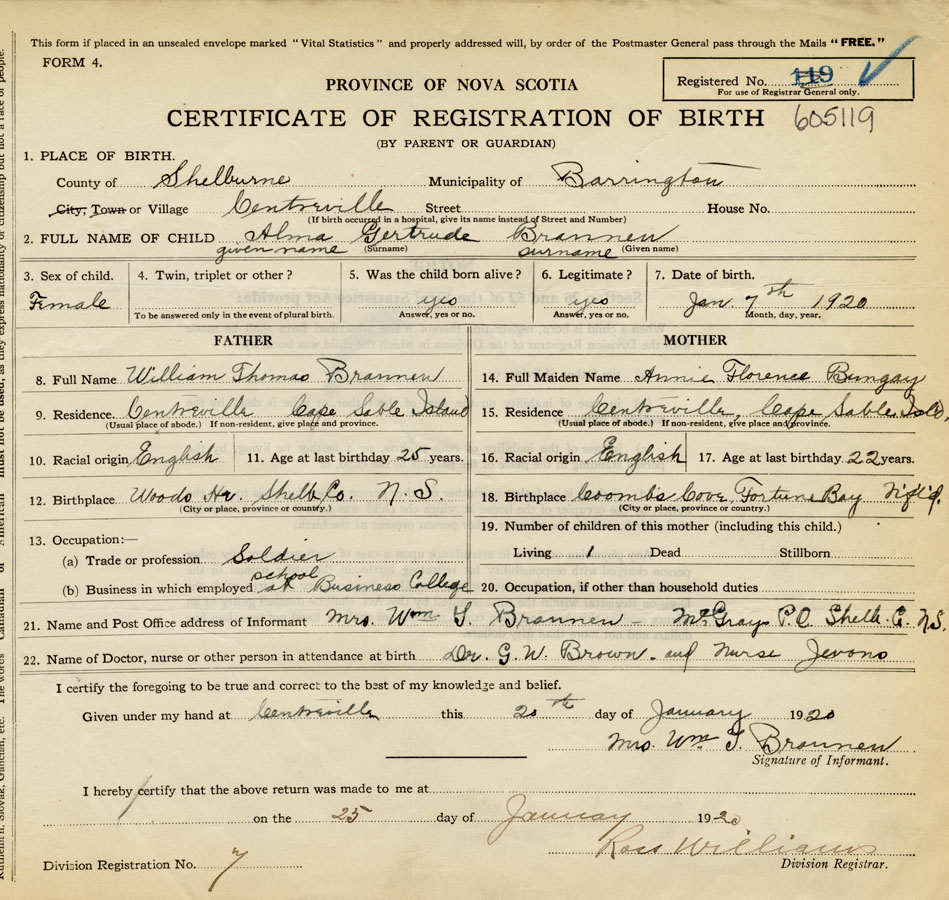 This form if placed in an unsealed envelope marked "Vital Statistics" and properly addressed will, by order of the Postmaster General pass through the Mails "FREE."
FORM 4.
Registered No. 119
For use of Registrar General only.
PROVINCE OF NOVA SCOTIA
CERTIFICATE OF REGISTRATION OF BIRTH 605119
(BY PARENT OR GUARDIAN)
1. PLACE OF BIRTH.
County of Shelburne Municipality of Barrington
City, Town or Village Centreville Street House No.
(If birth occurred in a hospital, give its name instead of Street and Number)
2. FULL NAME OF CHILD Alma Gertrude Brannen
given name (Surname) surname (Given name)
3. Sex of child. 4. Twin, triplet or other? 5. Was the child born alive? 6. Legitimate? 7. Date of birth.
Female yes yes Jan 7th 1920
To be answered only in the event of plural birth. Answer, yes or no. Answer, yes or no. Month, day, year.
FATHER MOTHER
8. Full Name William Thomas Brannen 14. Full Maiden Name Annie Florence Bungay
9. Residence. Centreville Cape Sable Island 15. Residence Centreville, Cape Sable Isld,
(Usual place of abode.) If non-resident, give place and province. (Usual place of abode.) If non-resident, give place and province.
10. Racial origin English 11. Age at last birthday 25 years. 16. Racial origin English 17. Age at last birthday 22 years.
12. Birthplace Woods Hr. Shelb. Co. N.S. 18. Birthplace Coombs Cove, Fortune Bay Nf'l'd.
(City or place, province or country.) (City or place, province or country.)
19. Number of children of this mother (including this child.)
13. Occupation:—
(a) Trade or profession Soldier Living 1 Dead Stillborn
school
(b) Business in which employed at Business College 20. Occupation, if other than household duties
21. Name and Post Office address of Informant Mrs. Wm T. Brannen - McGrays P.O. Shelb. C. N.S.
22. Name of Doctor, nurse or other person in attendance at birth Dr. G. W. Brown - and Nurse Jevons
I certify the foregoing to be true and correct to the best of my knowledge and belief.
Given under my hand at Centreville this 20th day of January 1920
Mrs. Wm T. Brannen
Signature of Informant.
I hereby certify that the above return was made to me at
on the 25 day of January 1920
Ross Williams
Division Registration No. 7 Division Registrar.